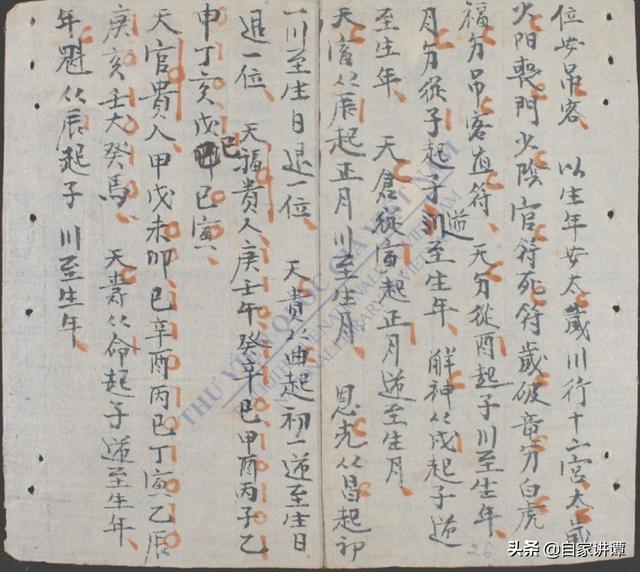 位安吊客 以生年安太歲川行十二宮太歲
少阳喪門少陰官符死符歲破竜匀白虎
福匀吊客直符 天匀從酉起子川至生年
月匀從子起子逆至生年 解神从戌起子逆
至生年 天倉從寅起正月逆至生月
从辰起正月川至生月 恩光从昌起初
一川至生日退一位 天貴从曲起初一逆至生日
退一位 天福貴人庚壬午癸辛巳甲酉丙子乙
申丁亥戊卯己寅
天官貴人甲戊未卯巳辛酉丙巳丁寅乙辰
庚亥壬犬癸馬 天壽从命起子逆至生年
年魁从辰起子川至生年
THƯ VIỆN QUỐC GIA VIỆT NAM
NATIONAL LIBRARY OF VIETNAM
26
头条 @自家讲谭